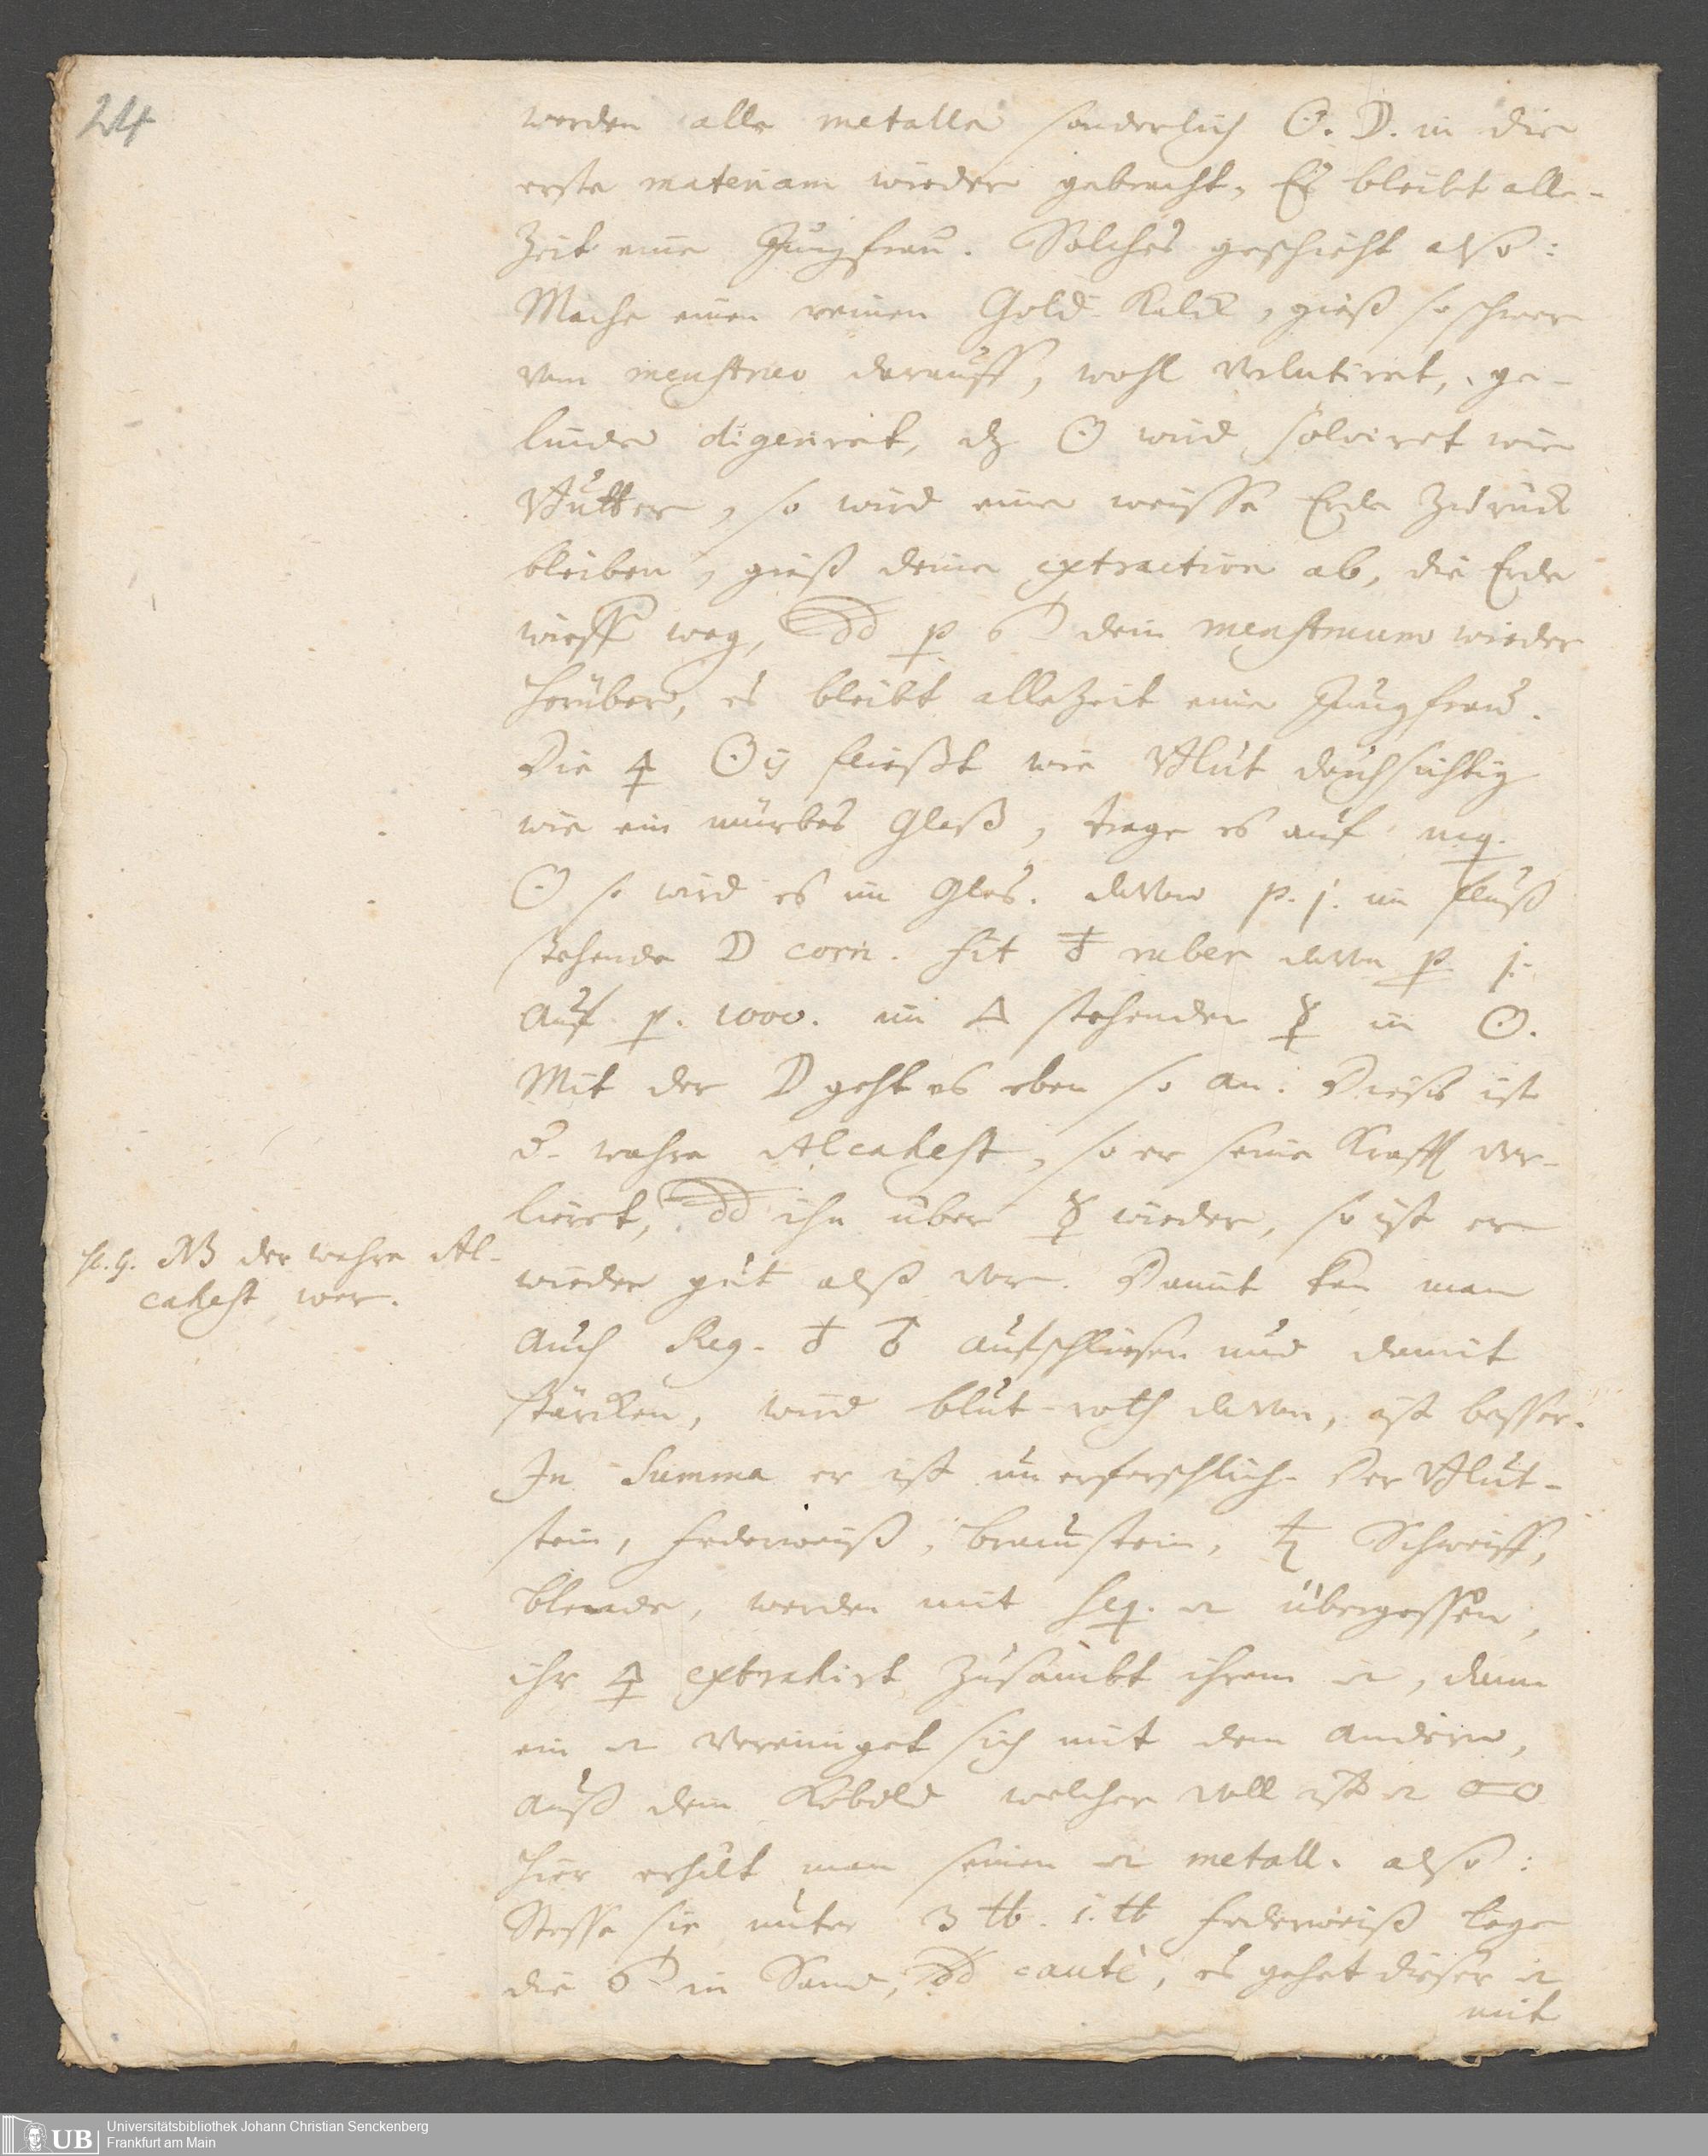 24
werden alle metalla sonderlich ☉. ☽. in die
erste materiam wieder gebracht, Es bleibt alle-
zeit eine Jungfrau. Solches geschieht also:
Mache einen reinen Gold Kalck, gieß so schwer
vom menstruo darauff, wohl verlutiret, ge-
linde digeriret, dz ☉ wird solviret wie
Butter, so wird eine weisse Erde zurück
bleiben, gieß deine extraction ab, die Erde
wirff weg, dein menstruum wieder
herüber, es bleibt allezeit eine Jungfrau.
Die 🜍 ☉ij fließt wie Blut durchsichtig
wie ein mürbes Glaß, trage es auf
☉ so wird es im Glas. davon p. j. im fluß
stehende ☽ corn. fit ♁ ruber davon p j.
auf p. 1000. im 🜂 stehenden ☿ in ☉.
Mit der ☽ geht es eben so an. Dieses ist
d. wahre Alcahest, so er seine Krafft ver-
lieret, ihn über ☿ wieder, so ist er
wieder gut alß vor. Damit kan man
auch Reg. ♁ ♂ aufschliesen und damit
stärcken, wird blut-roth davon, ist besser.
In Summa er ist unerforschlich. Der Blut-
stein, federweiß, braunstein, ♃ Schweiff,
blende, werden mit übergossen,
ihr 🜍 extrahirt zusambt ihrem , dann
ein vereiniget sich mit dem andern,
auß dem Kobold welcher voll ist o-o
hier erhält man seinen metall. also:
Stosse sie unter 3 ℔. 1. ℔ federweiß lege
die in Sand, cautè, es gehet dieser
mit
NB der wahre Al-
cahest wer.
Universitätsbibliothek Johann Christian Senckenberg
Frankfurt am Main
UB